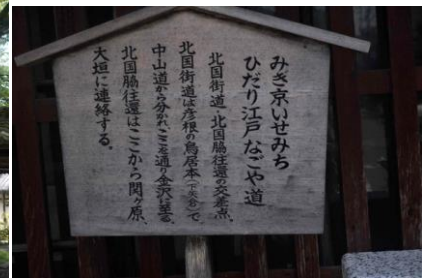 みぎ京いせみち
ひだり江戸なごや道
北国街道・北国脇往還の交差点。
北国街道は彦根の鳥居本(下矢倉)で、
中山道から分かれここを通り金沢に至る。
北国脇往還はここから関ヶ原、
大垣に連絡する。